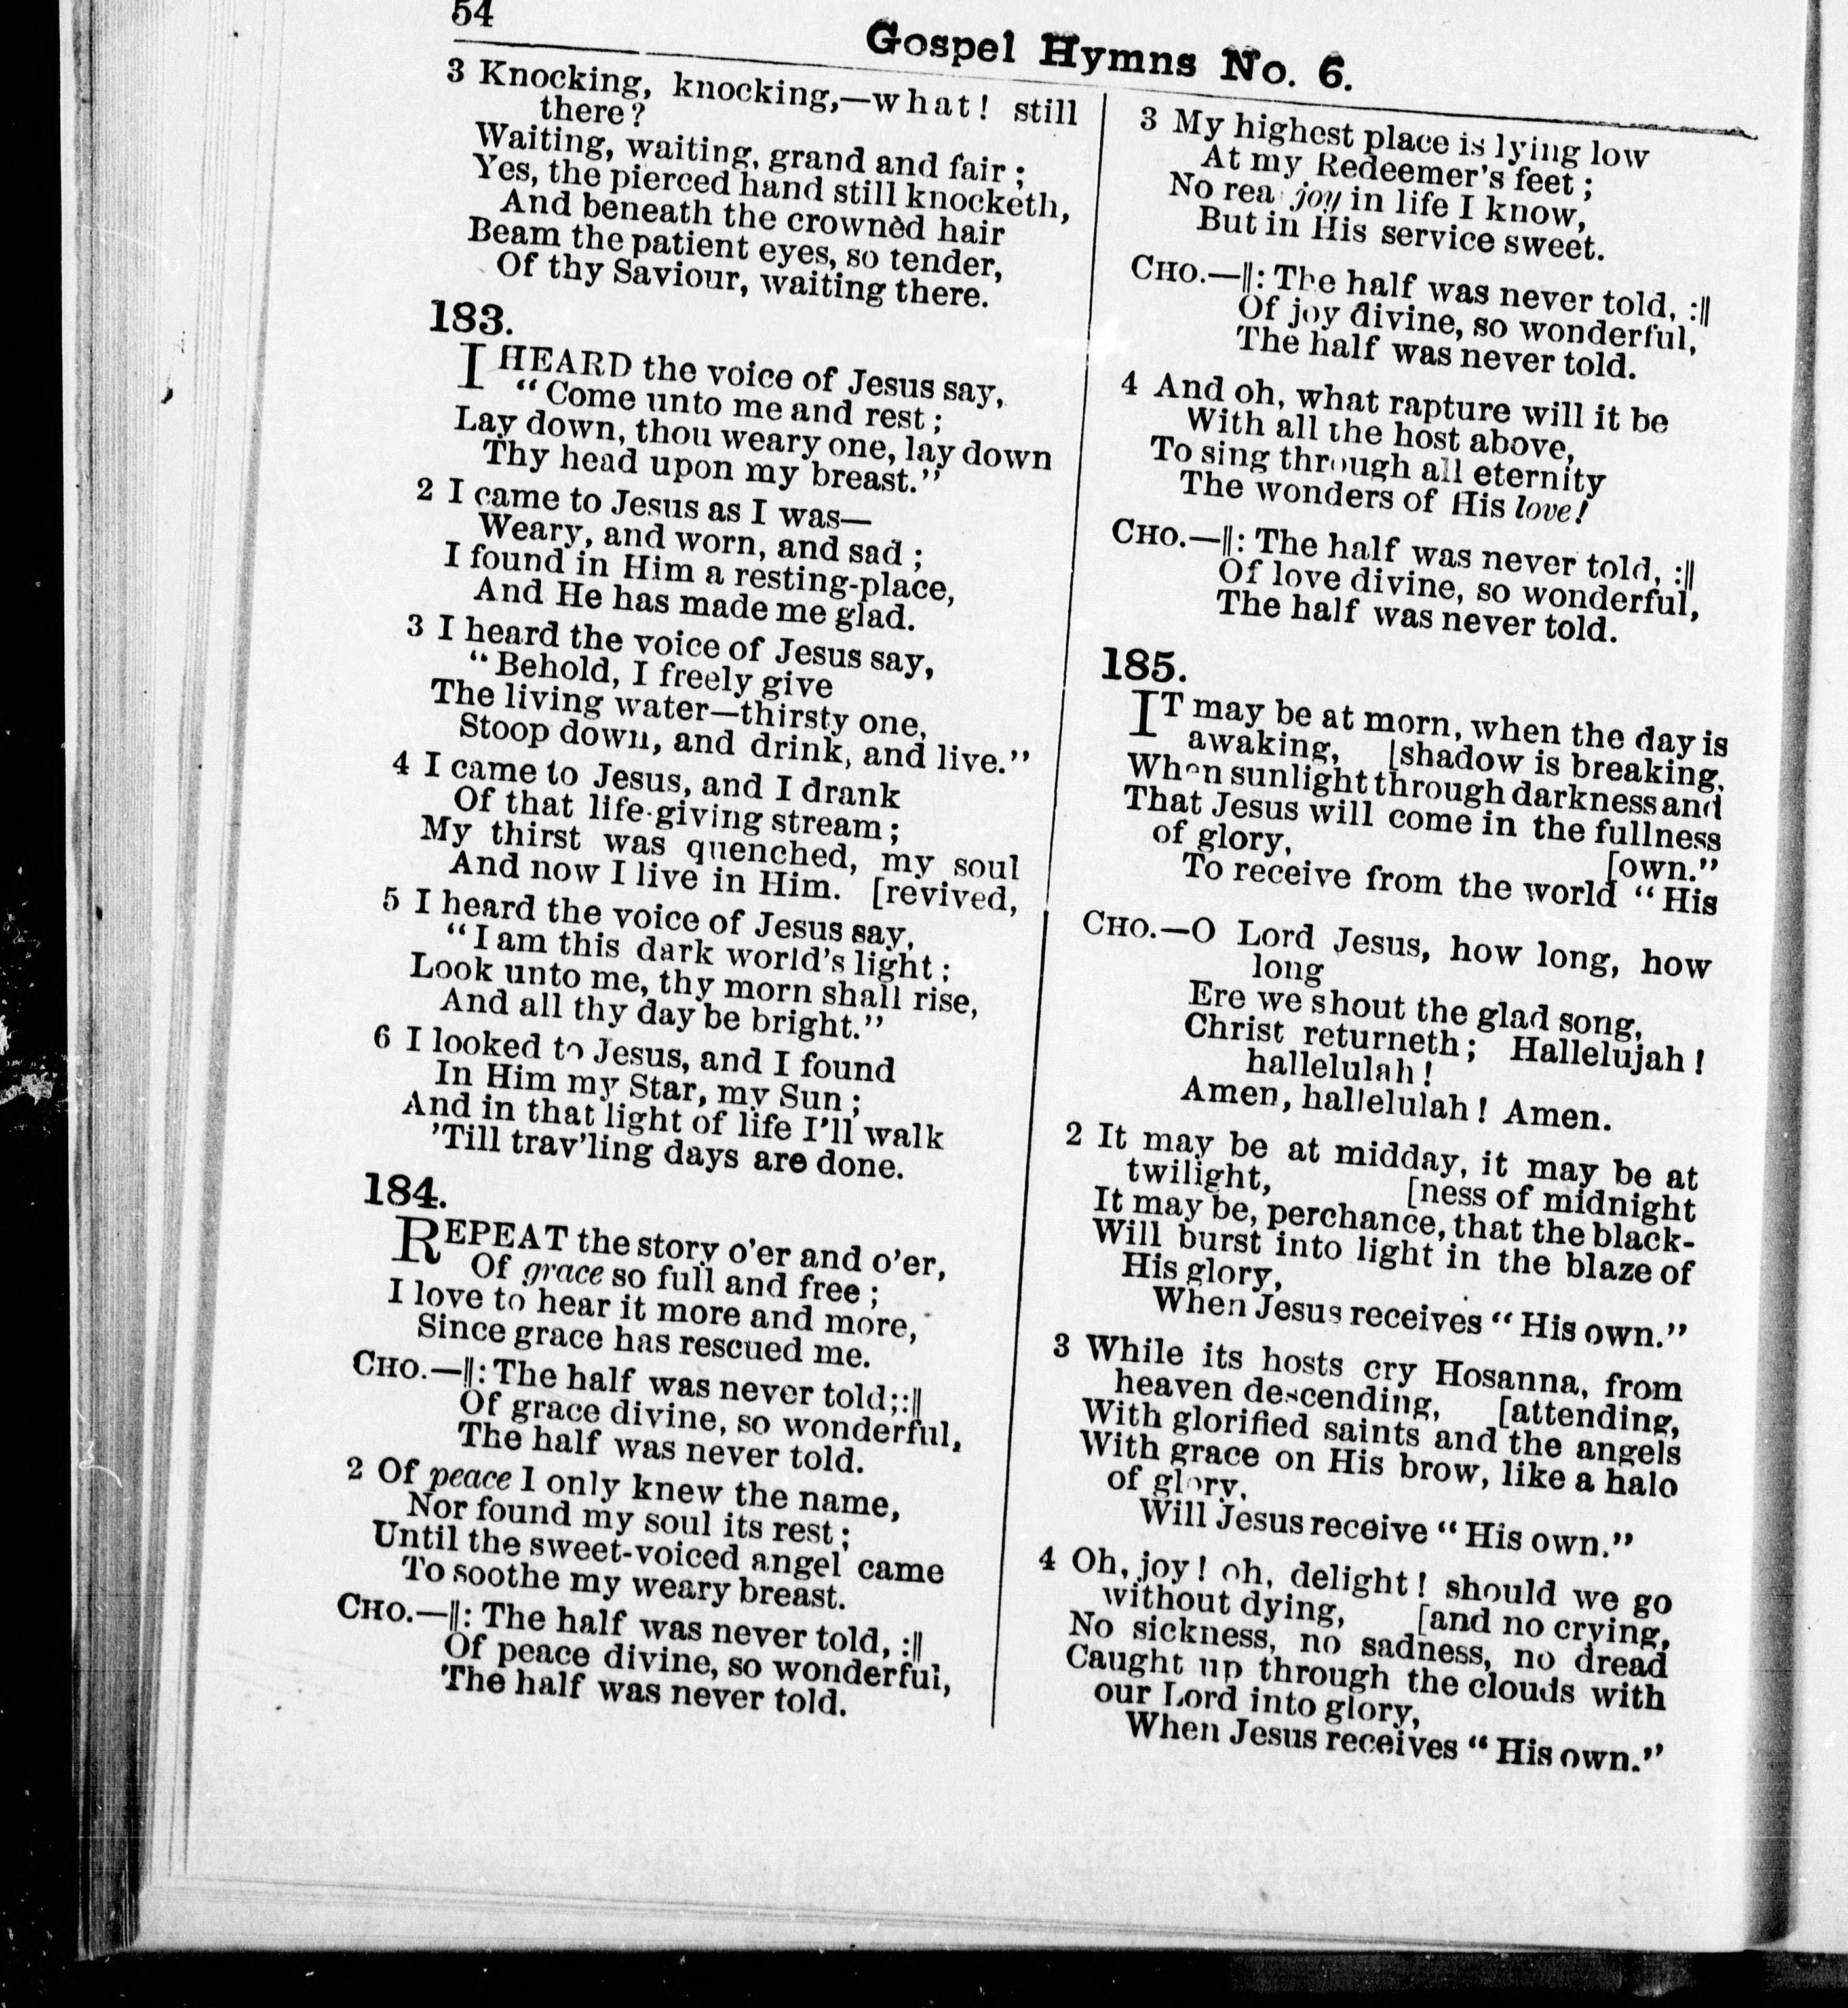 54
Gospel Hymns No. 6.
3 Knocking, knocking,—what! still
there?
Waiting, waiting, grand and fair;
Yes, the pierced hand still knocketh,
And beneath the crownèd hair
Beam the patient eyes, so tender,
Of thy Saviour, waiting there.
183.
I HEARD the voice of Jesus say,
"Come unto me and rest;
Lay down, thou weary one, lay down
Thy head upon my breast."
2 I came to Jesus as I was—
Weary, and worn, and sad;
I found in Him a resting-place,
And He has made me glad.
3 I heard the voice of Jesus say,
"Behold, I freely give
The living water—thirsty one,
Stoop down, and drink, and live."
4 I came to Jesus, and I drank
Of that life-giving stream;
My thirst was quenched, my soul
And now I live in Him. [revived,
5 I heard the voice of Jesus say,
"I am this dark world's light;
Look unto me, thy morn shall rise,
And all thy day be bright."
6 I looked to Jesus, and I found
In Him my Star, my Sun;
And in that light of life I'll walk
'Till trav'ling days are done.
184.
REPEAT the story o'er and o'er,
Of grace so full and free;
I love to hear it more and more,
Since grace has rescued me.
CHO.—‖: The half was never told;:‖
Of grace divine, so wonderful,
The half was never told.
2 Of peace I only knew the name,
Nor found my soul its rest;
Until the sweet-voiced angel came
To soothe my weary breast.
CHO.—‖: The half was never told, :‖
Of peace divine, so wonderful,
The half was never told.
3 My highest place is lying low
At my Redeemer's feet;
No rea joy in life I know,
But in His service sweet.
CHO.—‖: The half was never told, :‖
Of joy divine, so wonderful,
The half was never told.
4 And oh, what rapture will it be
With all the host above,
To sing through all eternity
The wonders of His love!
CHO.—‖: The half was never told, :‖
Of love divine, so wonderful,
The half was never told.
185.
IT may be at morn, when the day is
awaking, [shadow is breaking,
When sunlight through darkness and
That Jesus will come in the fullness
of glory, [own."
To receive from the world "His
CHO.—O Lord Jesus, how long, how
long
Ere we shout the glad song,
Christ returneth; Hallelujah!
hallelulah!
Amen, hallelulah! Amen.
2 It may be at midday, it may be at
twilight, [ness of midnight
It may be, perchance, that the black-
Will burst into light in the blaze of
His glory,
When Jesus receives "His own."
3 While its hosts cry Hosanna, from
heaven descending, [attending,
With glorified saints and the angels
With grace on His brow, like a halo
of glory,
Will Jesus receive "His own."
4 Oh, joy! oh, delight! should we go
without dying, [and no crying,
No sickness, no sadness, no dread
Caught up through the clouds with
our Lord into glory,
When Jesus receives "His own."